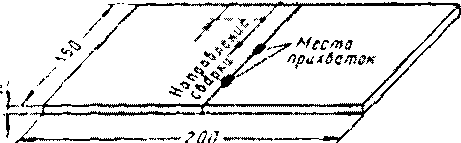 150
Направление
сварки
Места
прихваток
200